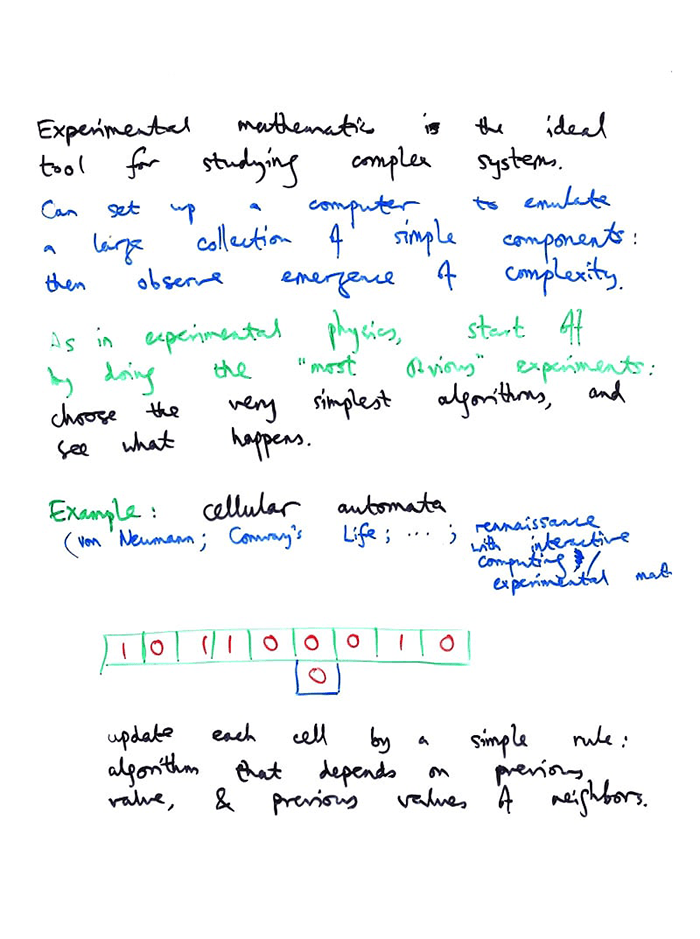 Experimental mathematics is the ideal
tool for studying complex systems.
Can set up a computer to emulate
a large collection of simple components:
then observe emergence of complexity.
As in experimental physics, start off
by doing the "most obvious" experiments:
choose the very simplest algorithms, and
see what happens.
Example: cellular automata
(von Neumann; Conway's Life; ... ; rennaissance
with interactive
computing /
experimental mat
1 0 1 1 0 0 0 1 0
0
update each cell by a simple rule:
algorithm that depends on previous
value, & previous values of neighbors.